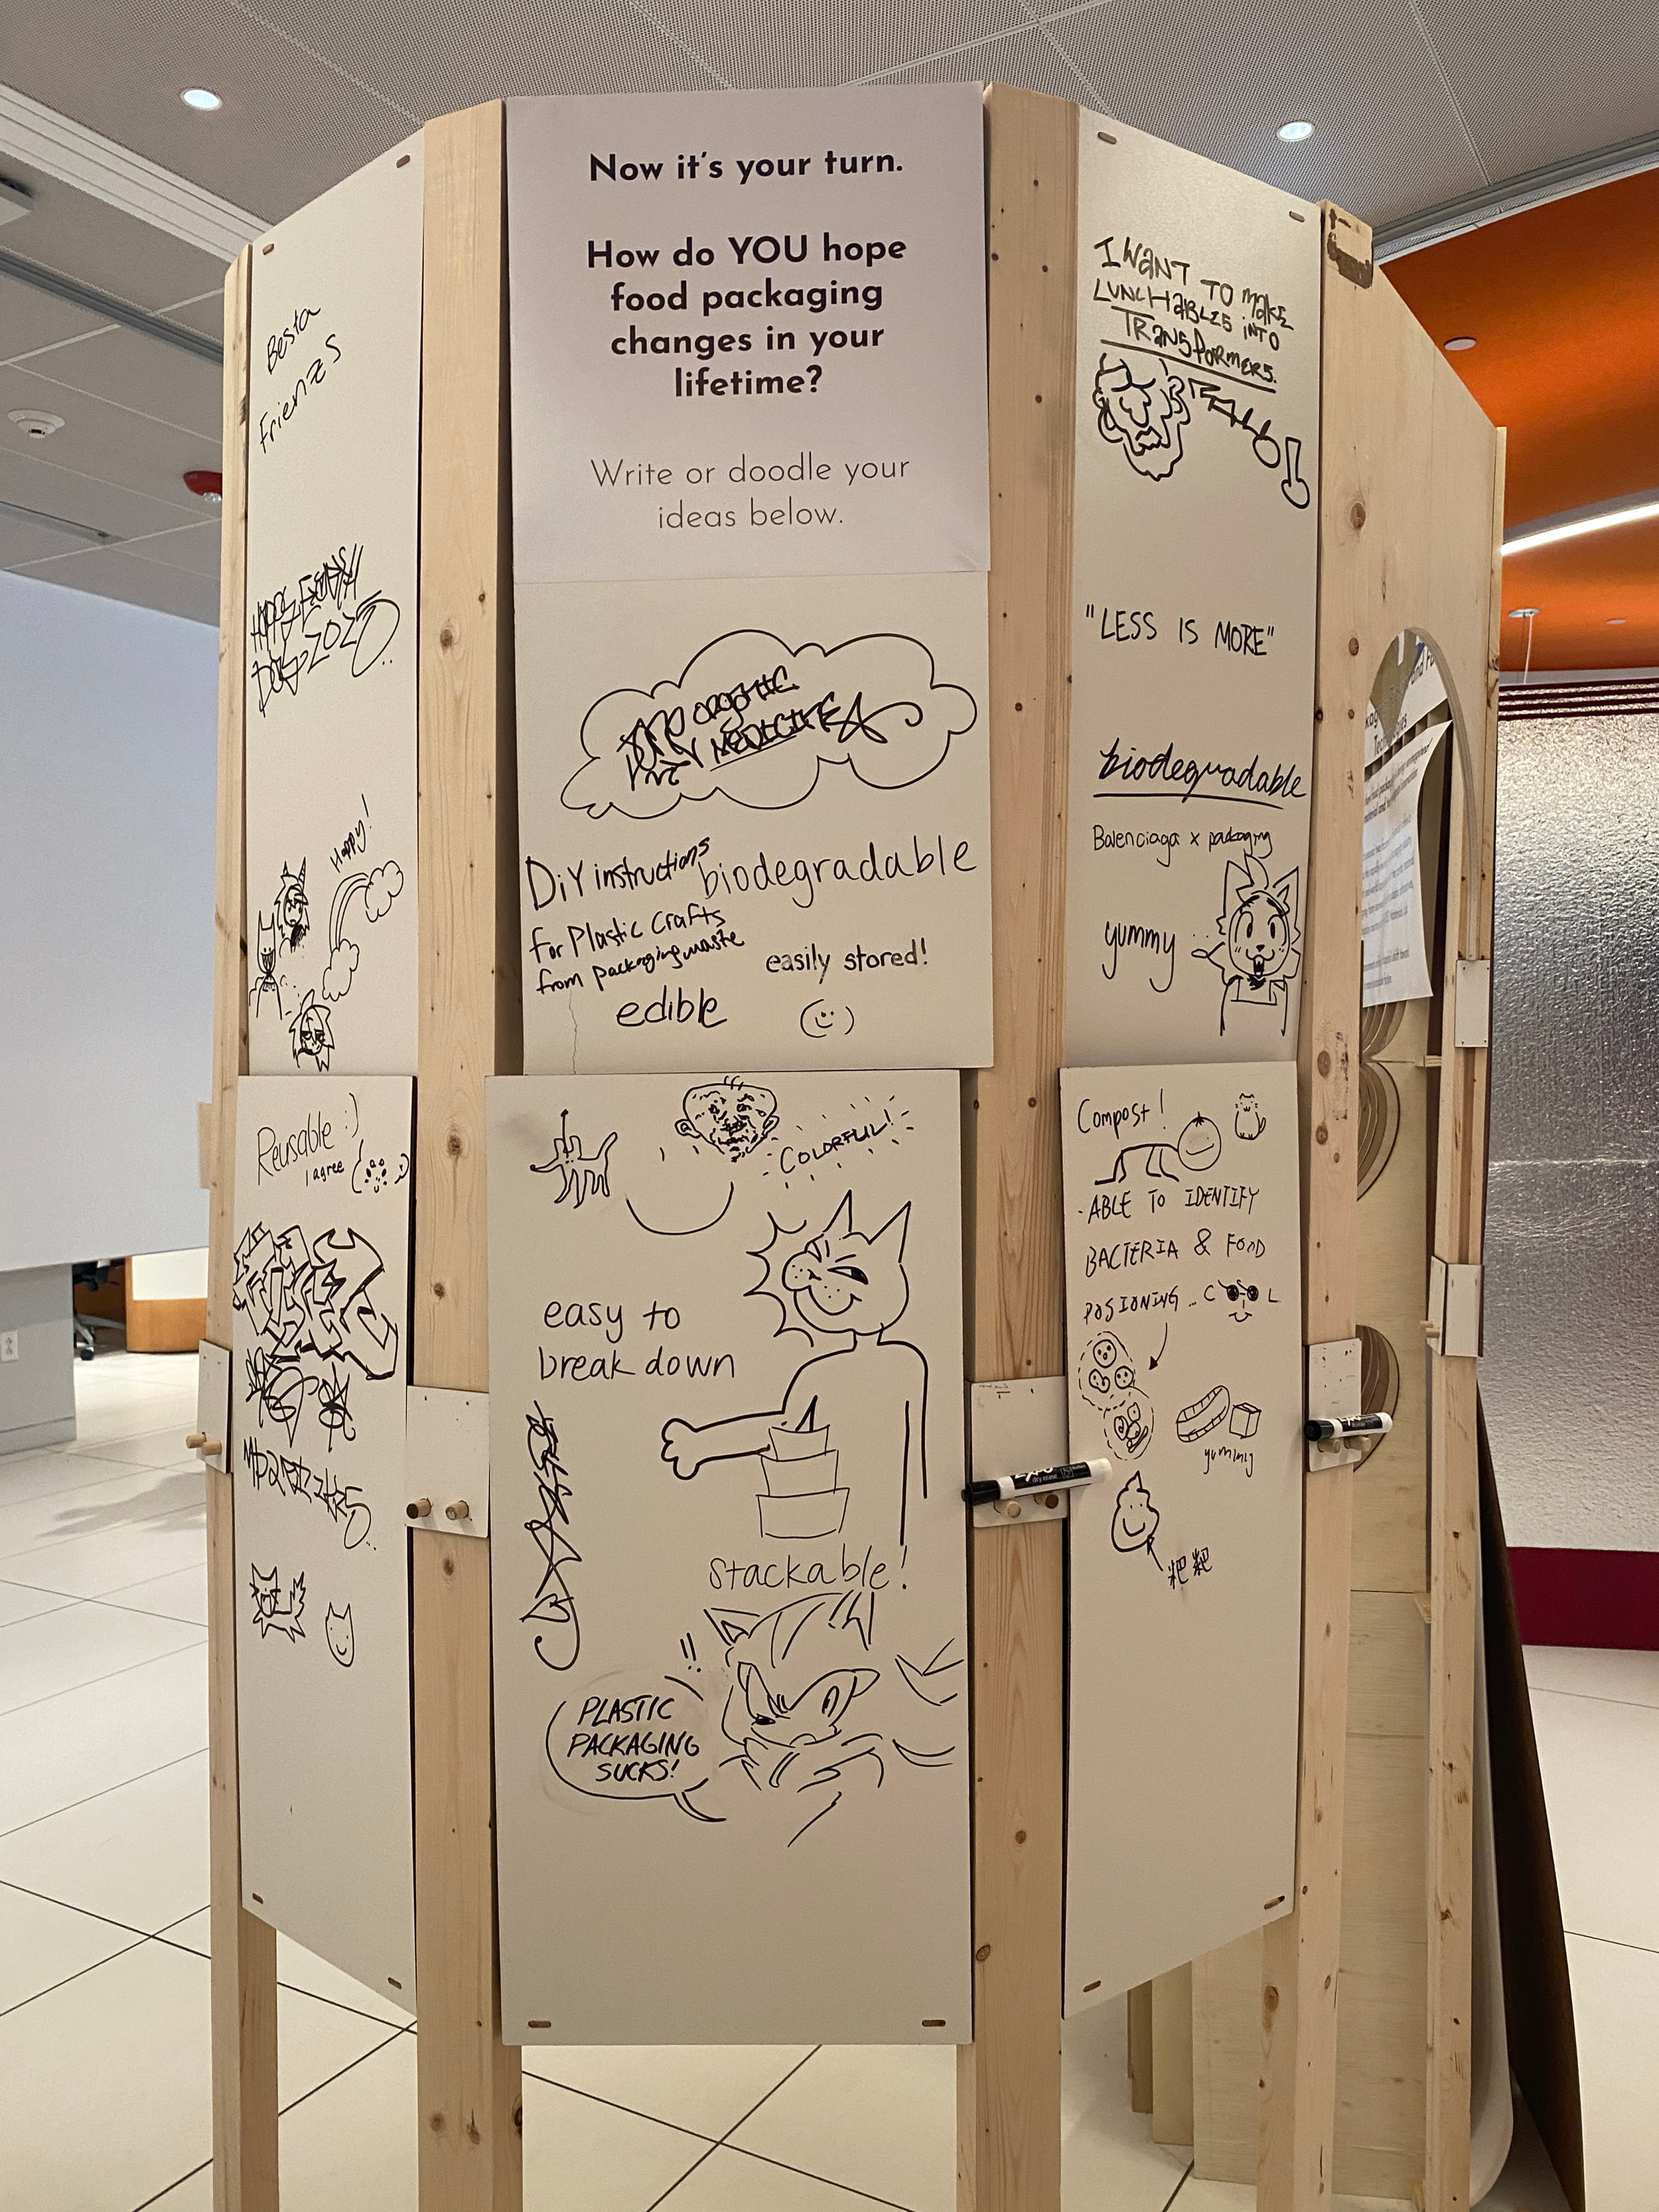 Now it's your turn.
How do YOU hope
food packaging
changes in your
lifetime?
Write or doodle your
ideas below.
Besta
Frienzs
HAPPY EARTH
DAY 2025
Happy!
ORGANIC
MEDICINE
DiY instructions
for Plastic Crafts
from packaging waste
biodegradable
easily stored!
edible
I WANT TO MAKE
LUNCHABLES INTO
TRANSFORMERS.
"LESS IS MORE"
biodegradable
Balenciaga x packaging
yummy
Reusable :)
I agree
COLORFUL!
easy to
break down
stackable!
!!
PLASTIC
PACKAGING
SUCKS!
Compost!
·ABLE TO IDENTIFY
BACTERIA & FOOD
POSIONING... COOL
yummy
粑粑
EXPO
dry erase